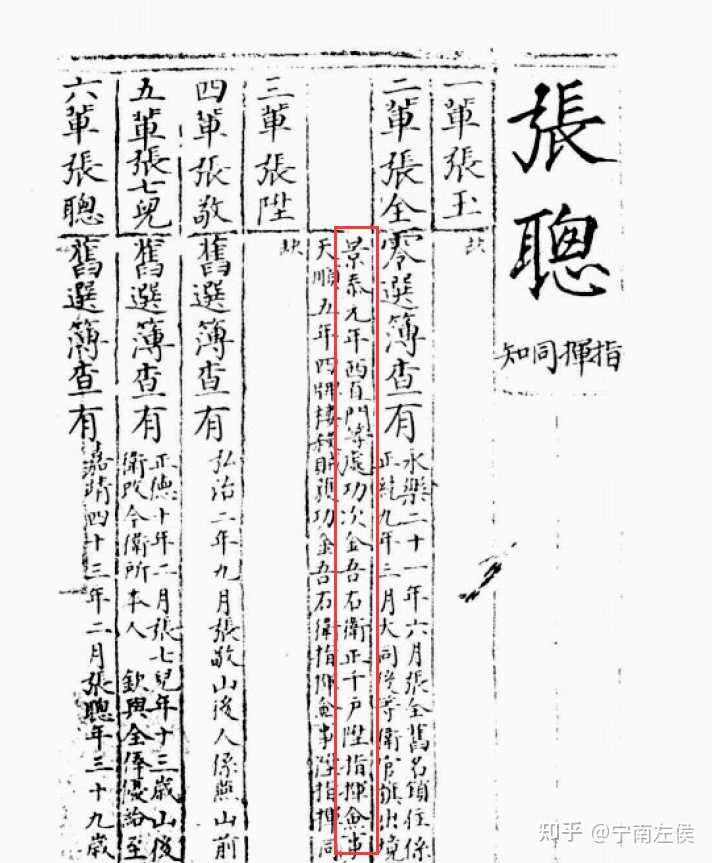 張聰
指揮同知
一輩張玉
缺
二輩張全
零選簿查有
永樂二十一年六月張全舊名鎖住係
正統九年三月大同後等衛官旗出境
景泰元年西直門等處功次金吾右衛正千戶陞指揮僉事
天順五年四牌樓殺賊功金吾右衛指揮僉事陞指揮同
三輩張陞
缺
四輩張敬
舊選簿查有
弘治二年九月張敬山後人係燕山前
五輩張七兒
舊選簿查有
正德十年二月張七兒年十三歲山後
衛改今衛所本人欽與全俸優給至
六輩張聰
舊選簿查有
嘉靖四十三年二月張聰年三十九歲
知乎 @宁南左侯